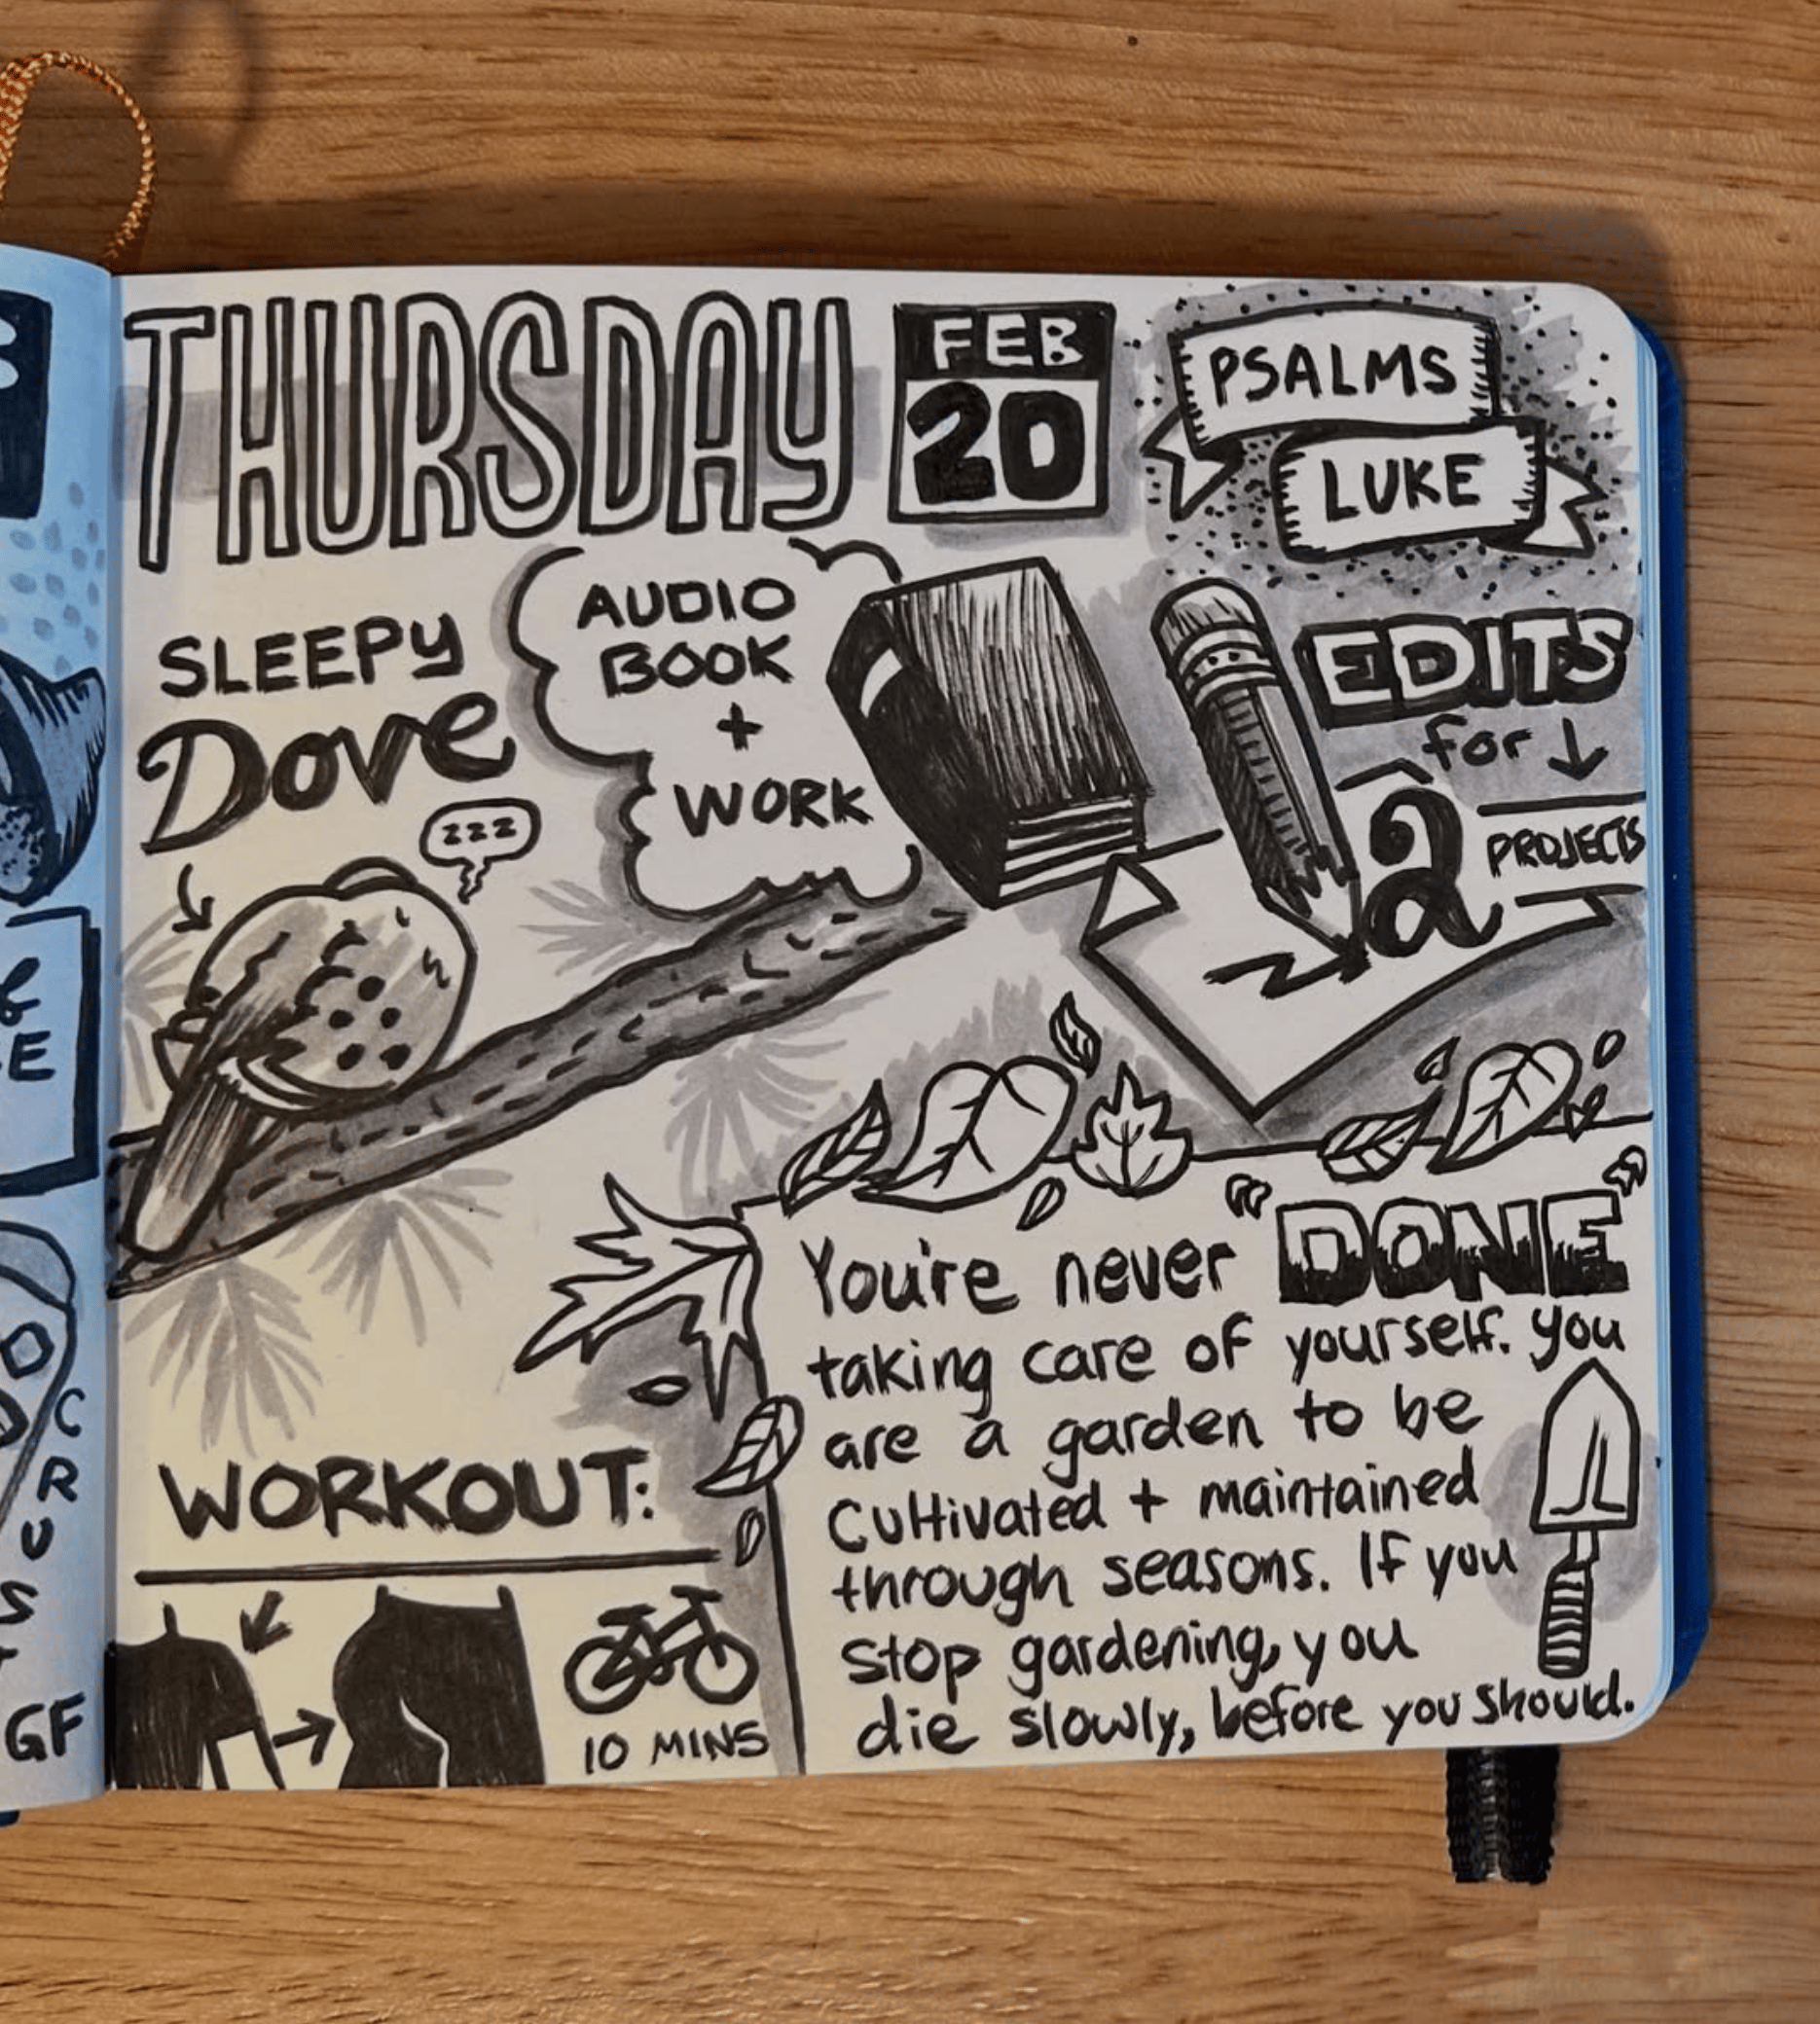 THURSDAY
FEB
20
PSALMS
LUKE
SLEEPY
Dove
zzz
AUDIO
BOOK
+
WORK
EDITS
for ↓
2
PROJECTS
You're never "DONE"
taking care of yourself. You
are a garden to be
cultivated + maintained
through seasons. If you
stop gardening, you
die slowly, before you should.
WORKOUT:
10 MINS
E
C
R
U
S
T
GF